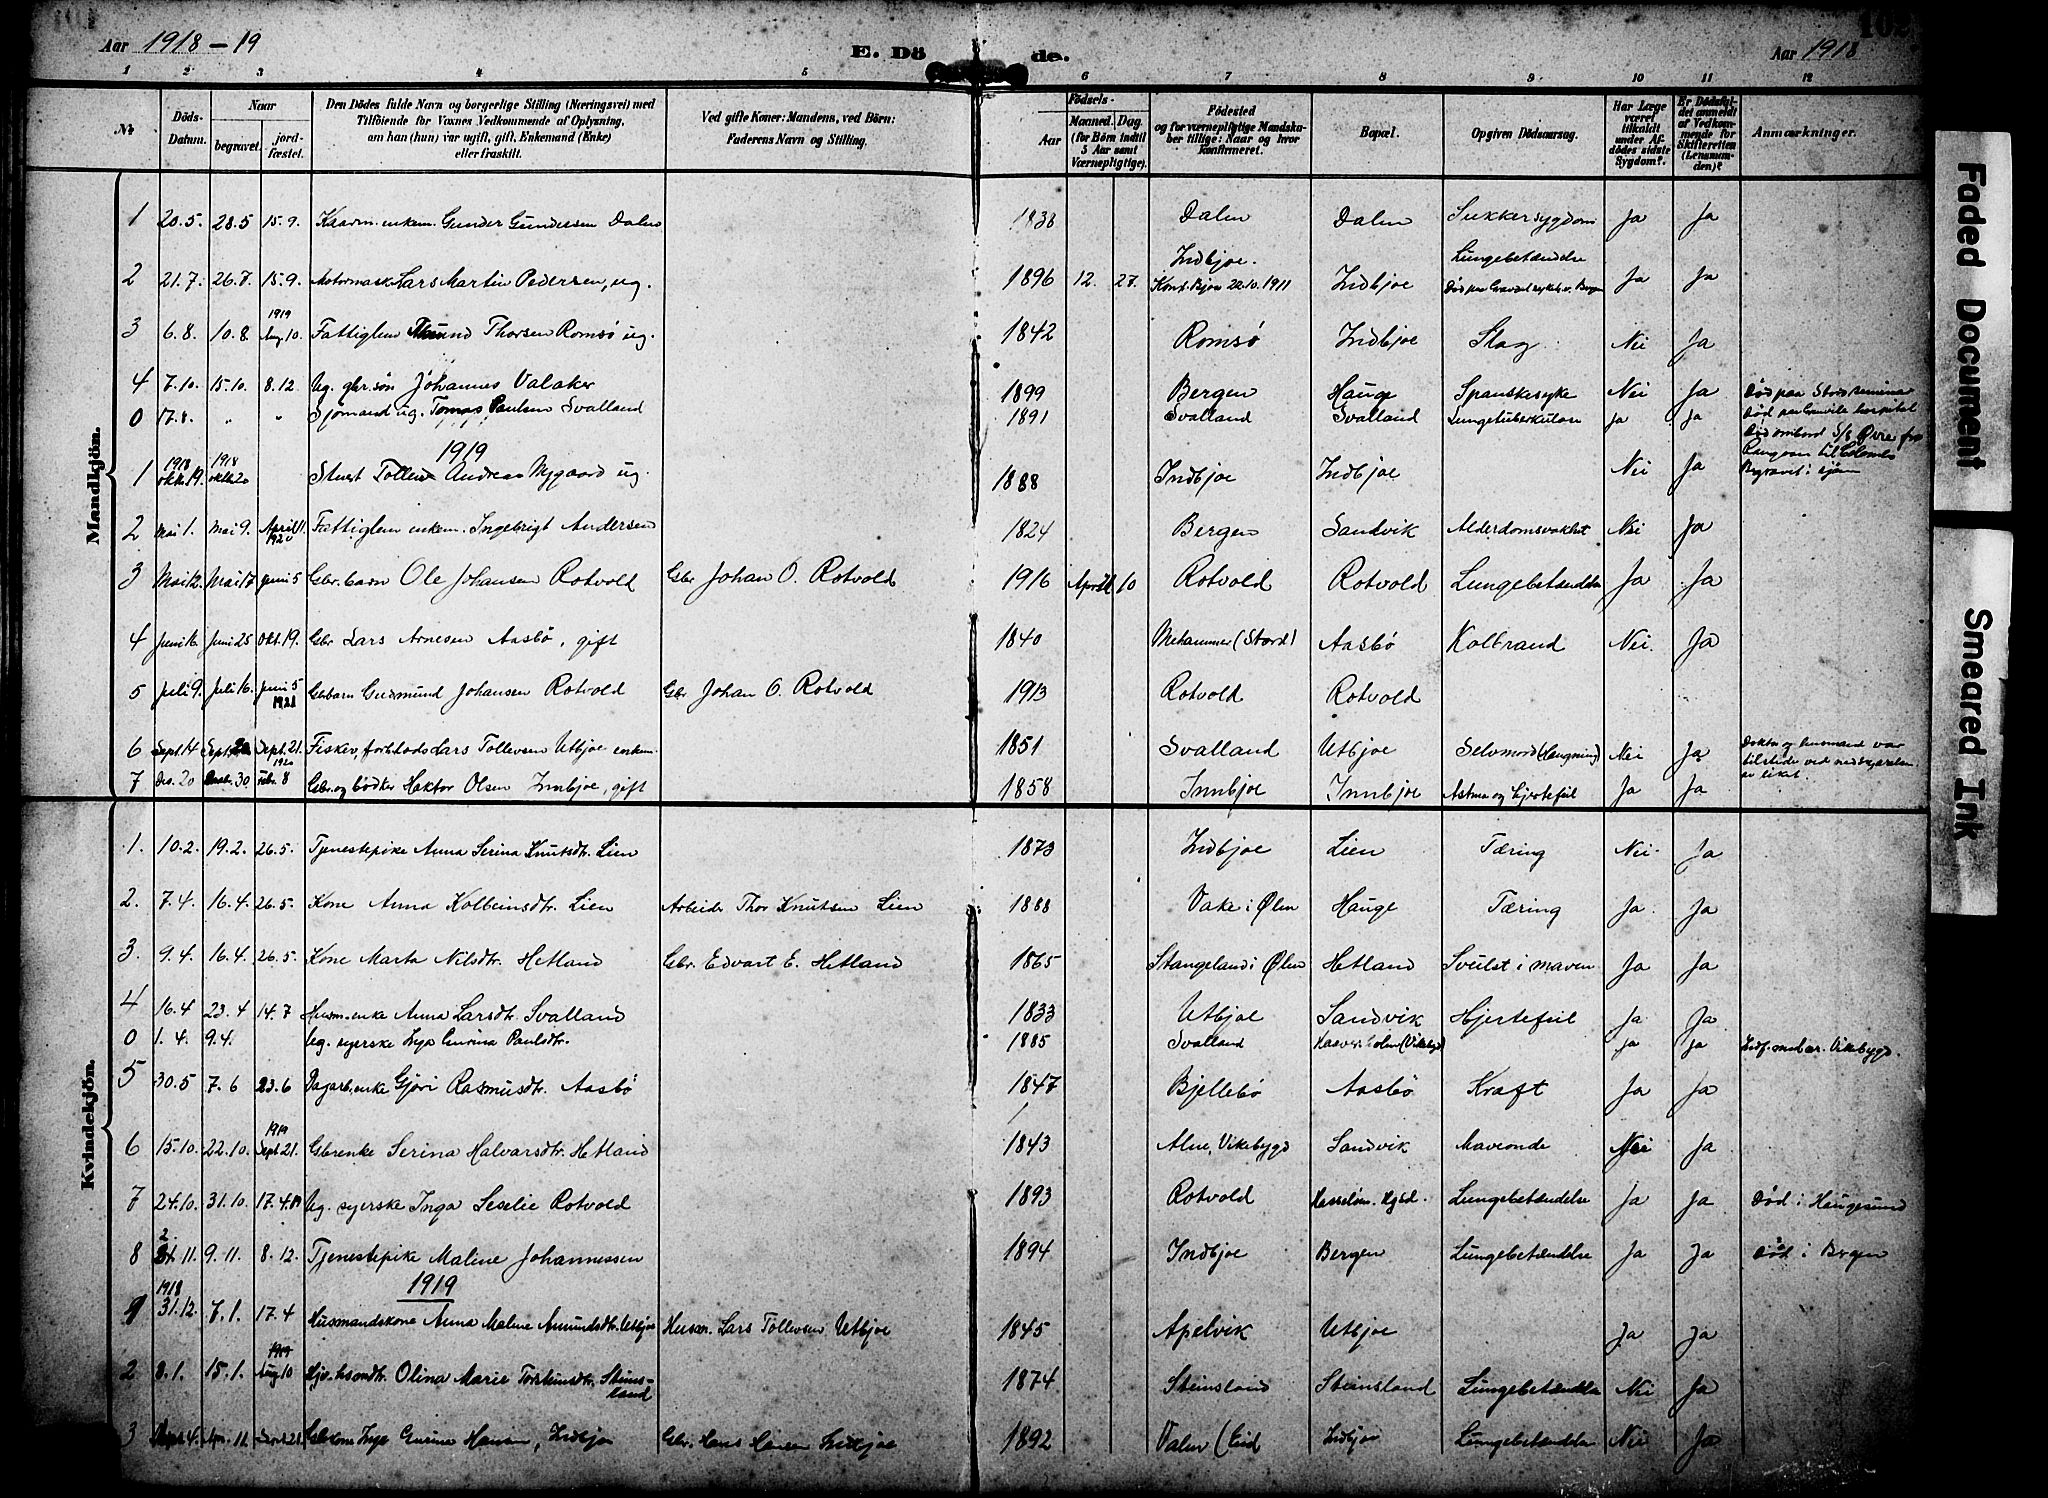 Aar 1918-19 E. Döde. Aar 1918 102
1 2 3 4 5 6 7 8 9 10 11 12
№ Döds-Datum. Naar begravet. jord-fæstet. Den Dödes fulde Navn og borgerlige Stilling (Næringsvei) med Tilföiende for Voxnes Vedkommende af Oplysning, om han (hun) var ugift, gift, Enkemand (Enke) eller fraskilt. Ved gifte Koner: Mandens, ved Börn: Faderens Navn og Stilling. Födsels- Aar Maaned. Dag. (for Börn indtil 5 Aar samt Værnepligtige). Födested og for værnepligtige Mandskaber tillige: Naar og hvor konfirmeret. Bopæl. Opgiven Dödsaarsag. Har Læge været tilkaldt under Afdödes sidste Sygdom? Er Dödsfaldet anmeldt af Vedkommende for Skifteretten (Lensmanden)? Anmærkninger.
Mandkjön.
1 20.5. 28.5 15.9. Kaarm. enkem. Gunder Gundersen Dalen 1838 Dalen Dalen Sukkersygdom Ja Ja
2 21.7. 26.7. 15.9. Motormask Lars Martin Pedersen, ug. 1896 12. 27. Indbjoe. Konf. Bjoa 22.10.1911 Indbjoe Lungebetændelse Ja Ja
3 6.8. 10.8. 1919 Aug. 10. Fattiglem Thorsen Romsö ug. 1842 Romsö Indbjoe Slag Nei Ja
4 7.10. 15.10. 8.12. Ug. gbr.sön Johannes Valaker 1899 Bergen Hauge Spanskesyke Nei Ja Död paa Stord seminar
0 17.8. " " Sjömand ug. Tomas Paulsen Svalland 1891 Svalland Svalland Lungetuberkulose Ja Ja
1919
1 1918 okt. 19. 1918 okt. 20 Andreas Nygaard ug. 1888 Indbjoe Indbjoe Nei Ja Död ombord S/S fra Rangoon til Colombo Begravet i sjöen
2 Mai 1. Mai 9. April 11. 1920 Fattiglem enkem. Ingebrigt Andersen 1824 Bergen Sandvik Alderdomsvakhet Nei Ja
3 Mai 12. Mai 17 Juni 5 Gbr. barn Ole Johansen Rotvold Gbr Johan O. Rotvold 1916 April 10 Rotvold Rotvold Lungebetændelse Ja Ja
4 Juni 16. Juni 25 Okt. 19. Gbr Lars Arnesen Aasbö, gift 1840 Mehammer (Stord) Aasbö Kolbrand Nei. Ja
5 Juli 9. Juli 16. Juni 5 1921 Gbbarn Gudmund Johansen Rotvold Gbr. Johan O. Rotvold 1913 Rotvold Rotvold
6 Sept. 14 Sept. 20 Sept. 21. Fisker, Lars Tollevsen Utbjoe enkem. 1851 Svalland Utbjoe Selvmord (Hængning) Nei Ja Doktor og husmand var tilstede ved av liket.
7 Des. 20 30 1920 Febr. 8 Gbr. og bödker Haktor Olsen Innbjoe, gift 1858 Innbjoe Innbjoe Astma og hjertefeil Ja Ja
Kvindekjön.
1. 10.2. 19.2. 26.5. Tjenestepike Anna Serina Knutsdtr. Lien 1873 Indbjoe Lien Tæring Nei. Ja
2. 7.4. 16.4. 26.5. Kone Anna Kolbeinsdtr. Lien Arbeider Thor Knutsen Lien 1888 Vake i Ølen Hauge Tæring Ja. Ja
3. 9.4. 16.4. 26.5. Kone Marta Nilsdtr. Hetland Gbr. Edvart E. Hetland 1865 Stangeland i Ølen Hetland Svulst i maven Ja Ja
4 16.4 23.4 14.7 Husm.enke Anna Larsdtr. Svalland 1833 Utbjoe Sandvik Hjertefeil Ja Ja
0 1.4. 9.4. Ug. syerske Inga Gurina Paulsdtr. 1885 Svalland Ja Ja Indf. Vikebygd.
5 30.5 7.6 23.6 Dagarb.enke Gjöri Rasmusdtr. Aasbö 1847 Bjellebö Aasbö Kræft Ja Ja
6 15.10. 22.10. 1919 Sept 21. Gbrenke Serina Halvarsdtr. Hetland 1843 Alne, Vikebygd Sandvik Maveonde Nei Ja
7 24.10. 31.10. 17.4.19 Ug. syerske Inga Seselie Rotvold 1893 Rotvold Lungebetændelse Ja Ja Död i Haugesund
8 2.11. 9.11. 8.12. Tjenestepike Maline Johannessen 1894 Indbjoe Bergen Lungebetændelse Ja Ja Död i Bergen
1919
1 1918 31.12. 7.1. 17.4 Husmandskone Anna Maline Amundsdtr. Utbjoe Husm. Lars Tollevsen Utbjoe 1845 Apelvik Utbjoe Ja Ja
2 8.1. 15.1. 1919 Aug 10 Olina Marie Torsteinsdtr. Steinsland 1874 Steinsland Steinsland Lungebetændelse Nei Ja
3 Gbkone Inga Gurine Hansen, Indbjoe Gbr. Hans Hansen Indbjoe 1892 Valen Indbjoe Lungebetændelse Nei Ja
Faded Document
Smeared Ink